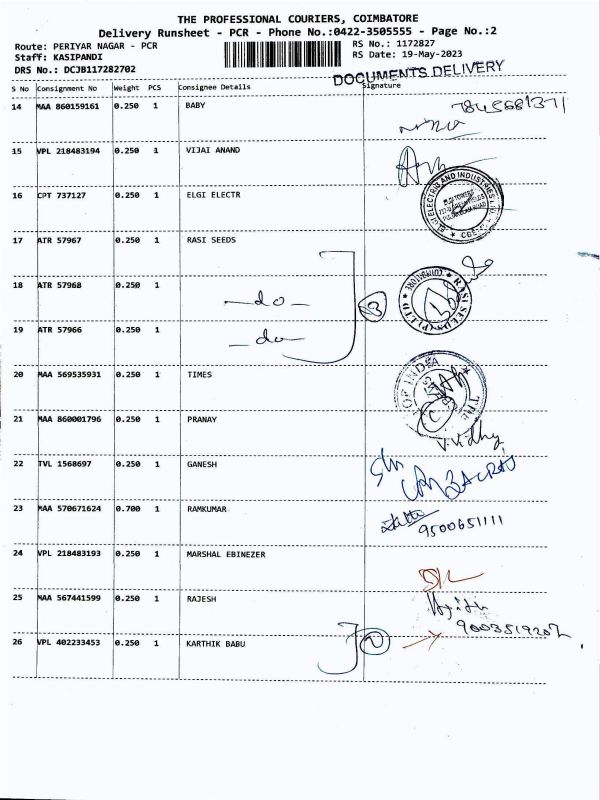 THE PROFESSIONAL COURIERS, COIMBATORE
Delivery Runsheet - PCR - Phone No.:0422-3505555 - Page No.:2
Route: PERIYAR NAGAR - PCR
RS No.: 1172827
Staff: KASIPANDI
RS Date: 19-May-2023
DRS No.: DCJB117282702
DOCUMENTS DELIVERY
S No Consignment No Weight PCS Consignee Details Signature
14 MAA 860159161 0.250 1 BABY
7845681371
15 VPL 218483194 0.250 1 VIJAI ANAND
16 CPT 737127 0.250 1 ELGI ELECTR
ELGI ELECTRIC AND INDUSTRIES LTD
17 ATR 57967 0.250 1 RASI SEEDS
18 ATR 57968 0.250 1 -do- 3
RASI SEEDS (P) LTD
19 ATR 57966 0.250 1 -do-
20 MAA 569535931 0.250 1 TIMES
OF INDIA
THE
21 MAA 860001796 0.250 1 PRANAY
V.Vidhy
22 TVL 1568697 0.250 1 GANESH
23 MAA 570671624 0.700 1 RAMKUMAR
9500651111
24 VPL 218483193 0.250 1 MARSHAL EBINEZER
25 MAA 567441599 0.250 1 RAJESH
9003519207
26 VPL 402233453 0.250 1 KARTHIK BABU 2